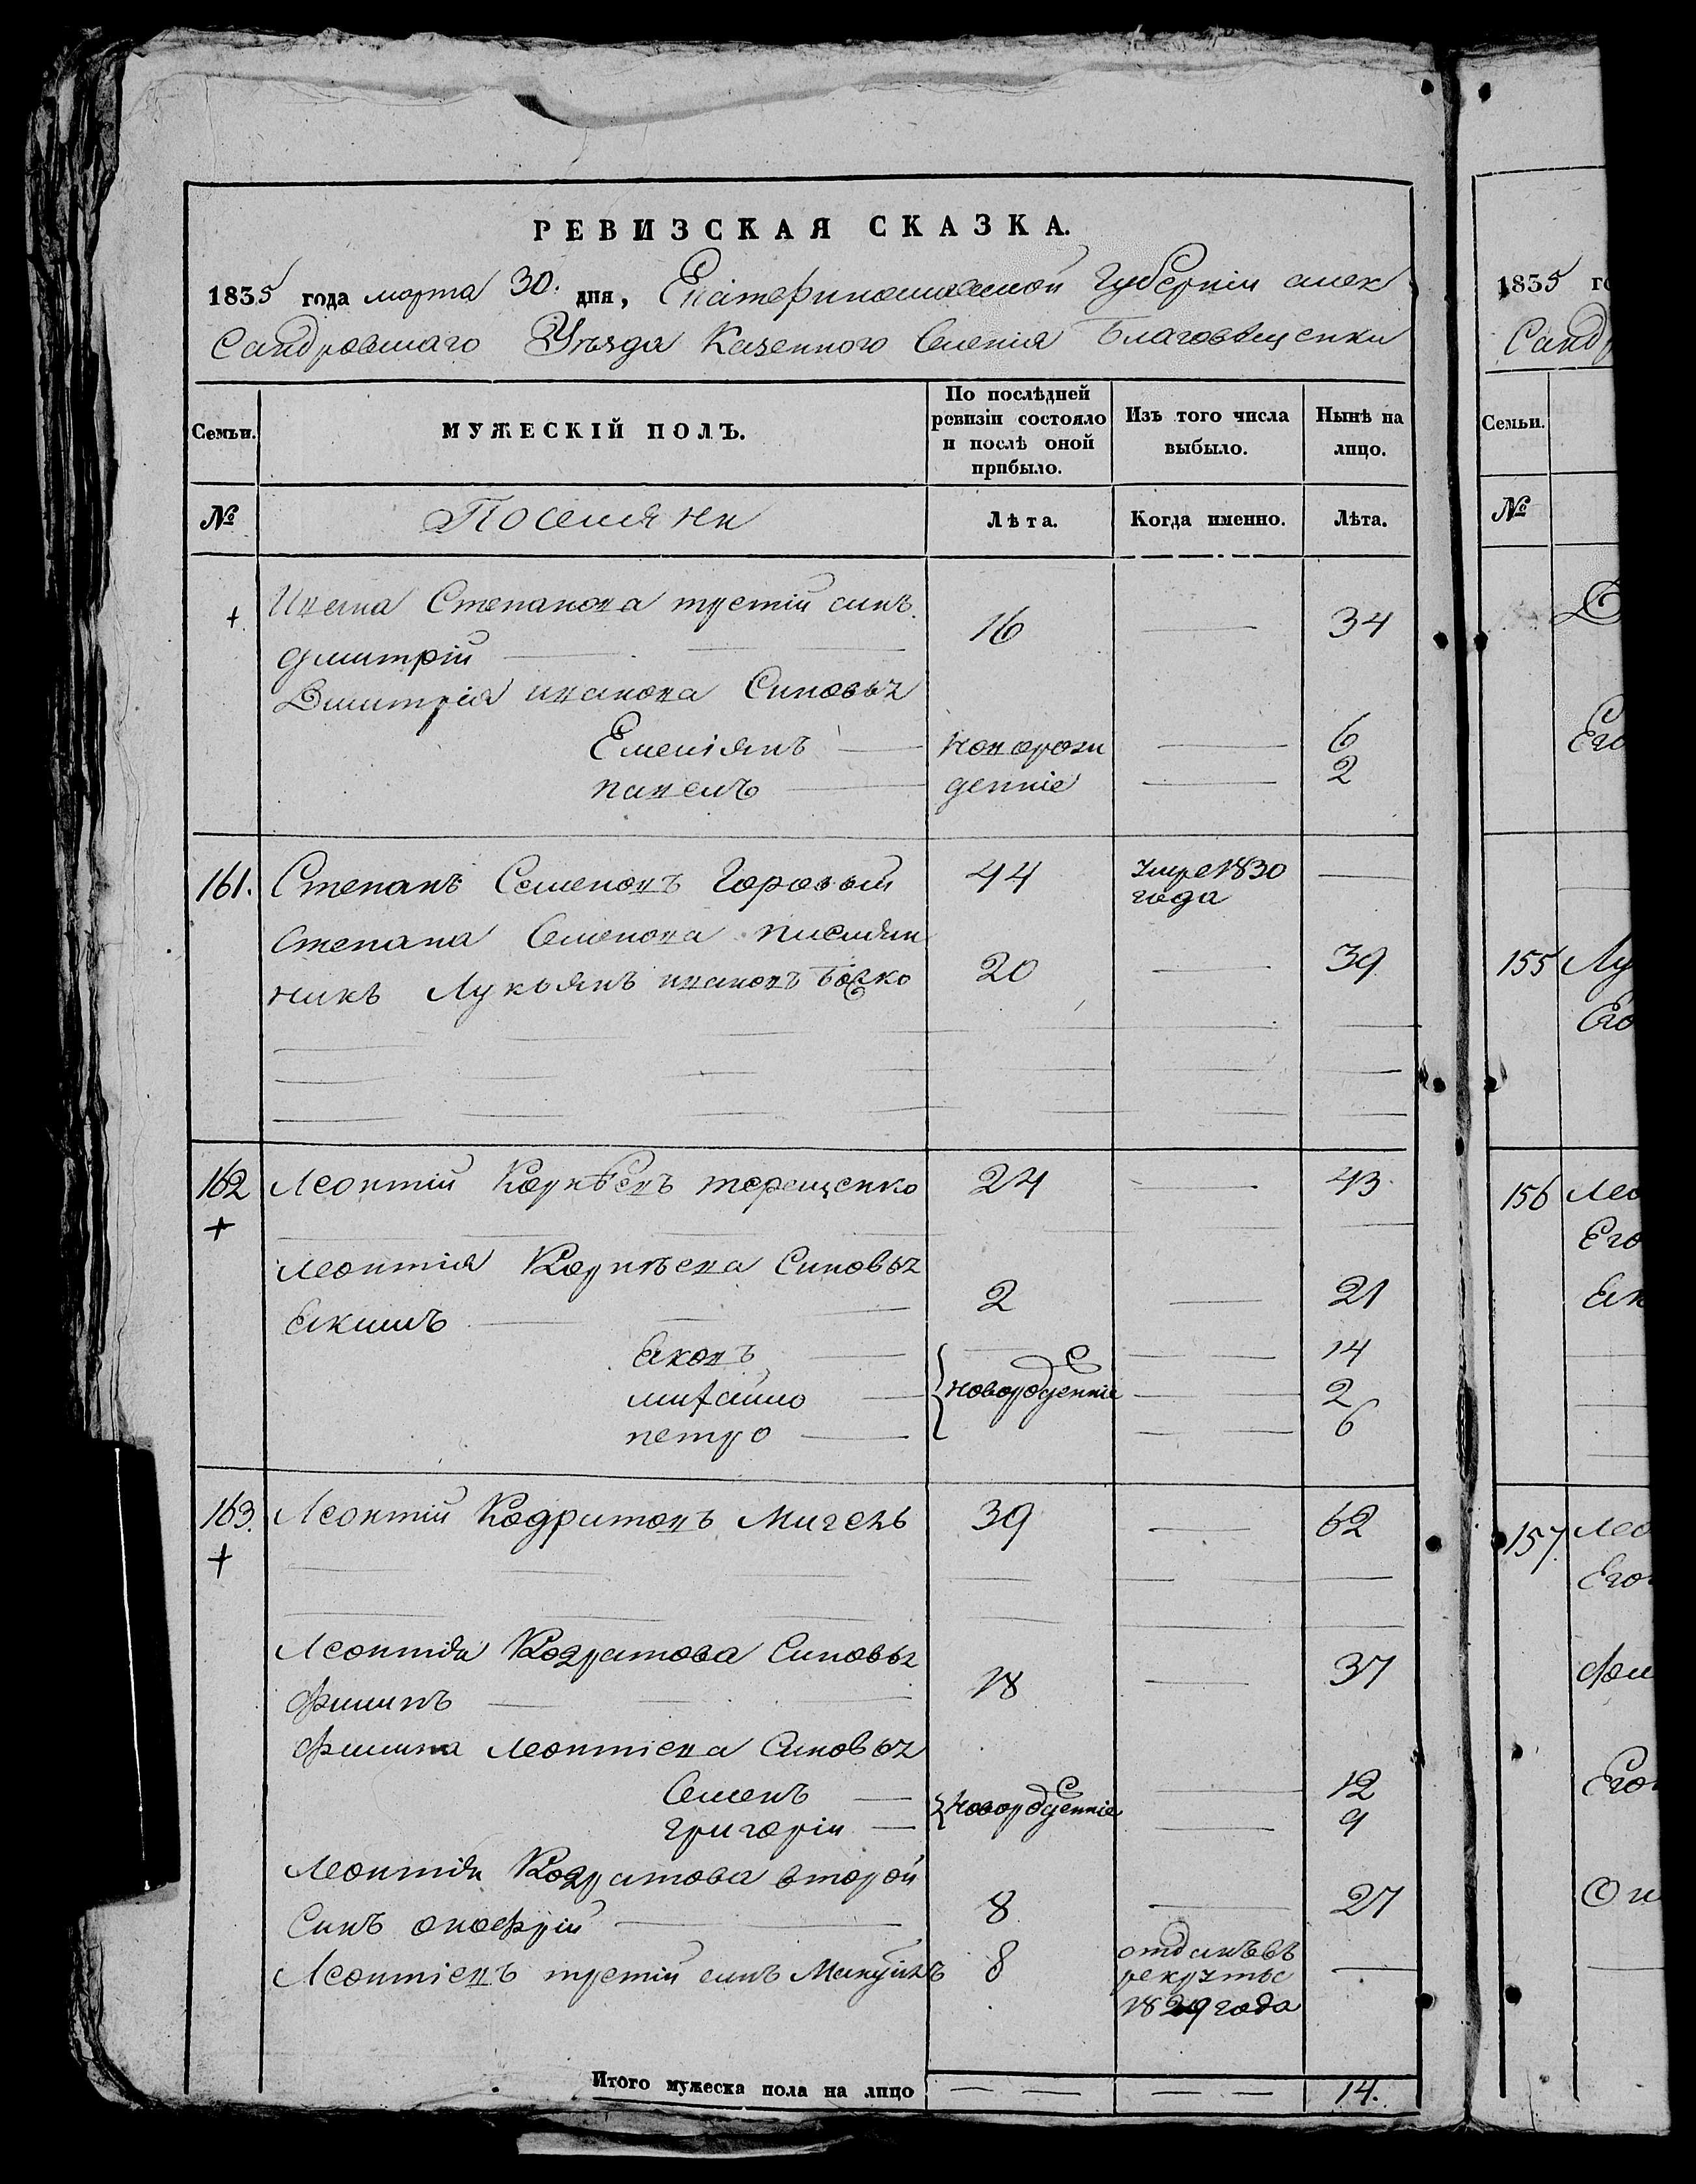 РЕВИЗСКАЯ СКАЗКА.
1835 года марта 30. дня, Екатеринославской Губерніи алек
Сандровскаго Уѣзда Казенного Селенія Благовѣщенки
Семьи.
МУЖЕСКІЙ ПОЛЪ.
По послѣдней ревизіи состояло и послѣ оной прибыло.
Изъ того числа выбыло.
Нынѣ на лицо.
№
Поселяни
Лѣта.
Когда именно.
Лѣта.
+ Ивана Степанова третій синъ
Дмитрій 16 34
Дмитрія иванова Синовьи
Емеліянъ новорож 6
павелъ денніе 2
161. Степанъ Семеновъ Горовый 44 Умре 1830 года
Степана Семенова племян
никъ Лукьянъ ивановъ 20 39
162 Леонтій Корнѣевъ терещенко 24 43
+
Леонтія Корнѣева Синовьи
Екимъ 2 21
Яковъ 14
михайло новорожденніе 2
петро 6
163. Леонтій Кодратовъ 39 62
+
Леонтія Кодратова Синовьи
Филипъ 18 37
Филипа Леонтіева Синовьи
Семенъ новорожденніе 12
григорій 9
Леонтія Кодратова второй
Синъ онофрій 8 27
Леонтіевъ третій синъ 8 отданъ въ
рекрути
1829 года
Итого мужеска пола на лицо 14.
1835 го
Санд
Семьи.
№
Его
155 Лу
Его
156 Лео
Его
157 Лео
Его
Фил
Его